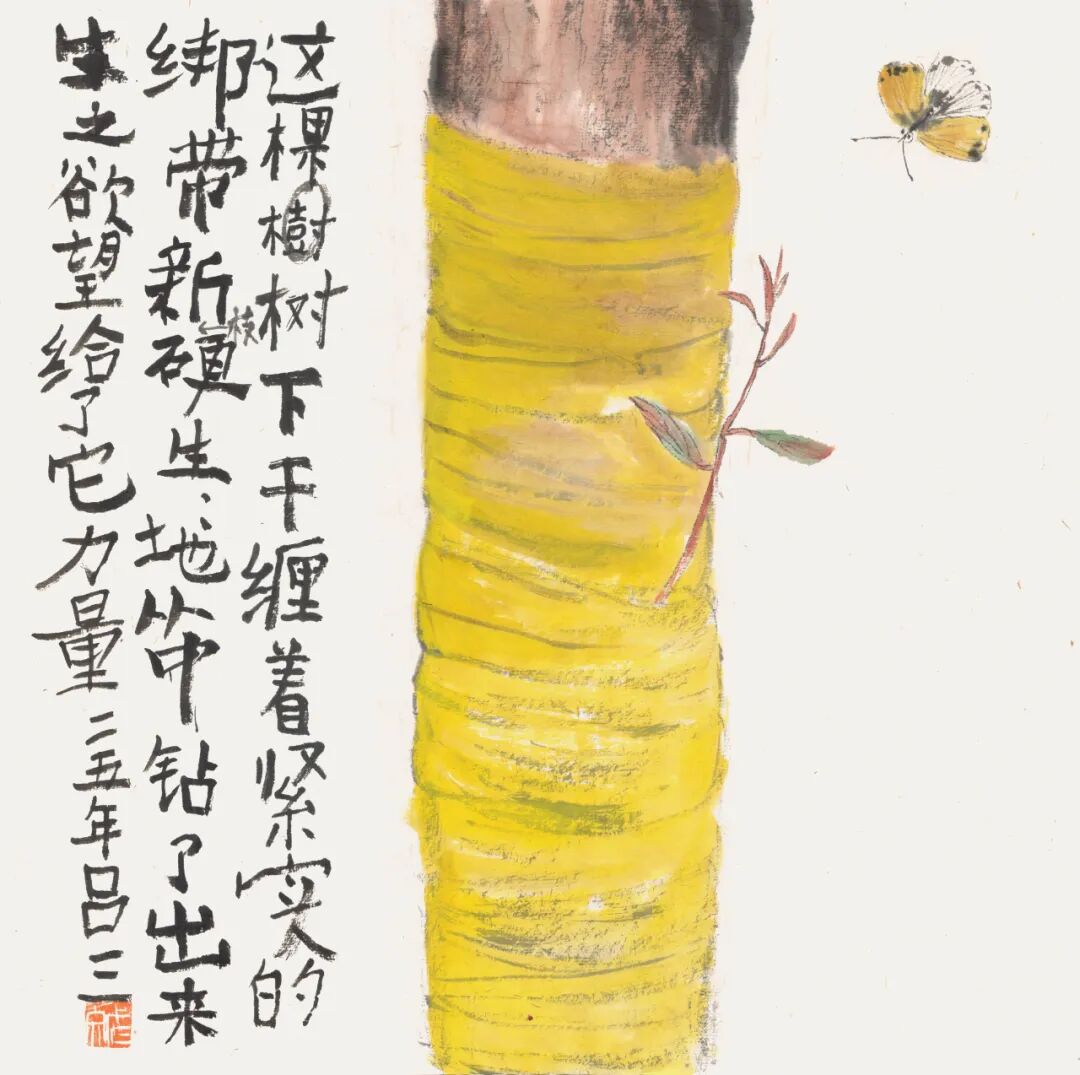 这棵樹树下干缠着紧实的
绑带新枝硬生、地从中钻了出来
生之欲望给了它力量二五年吕三